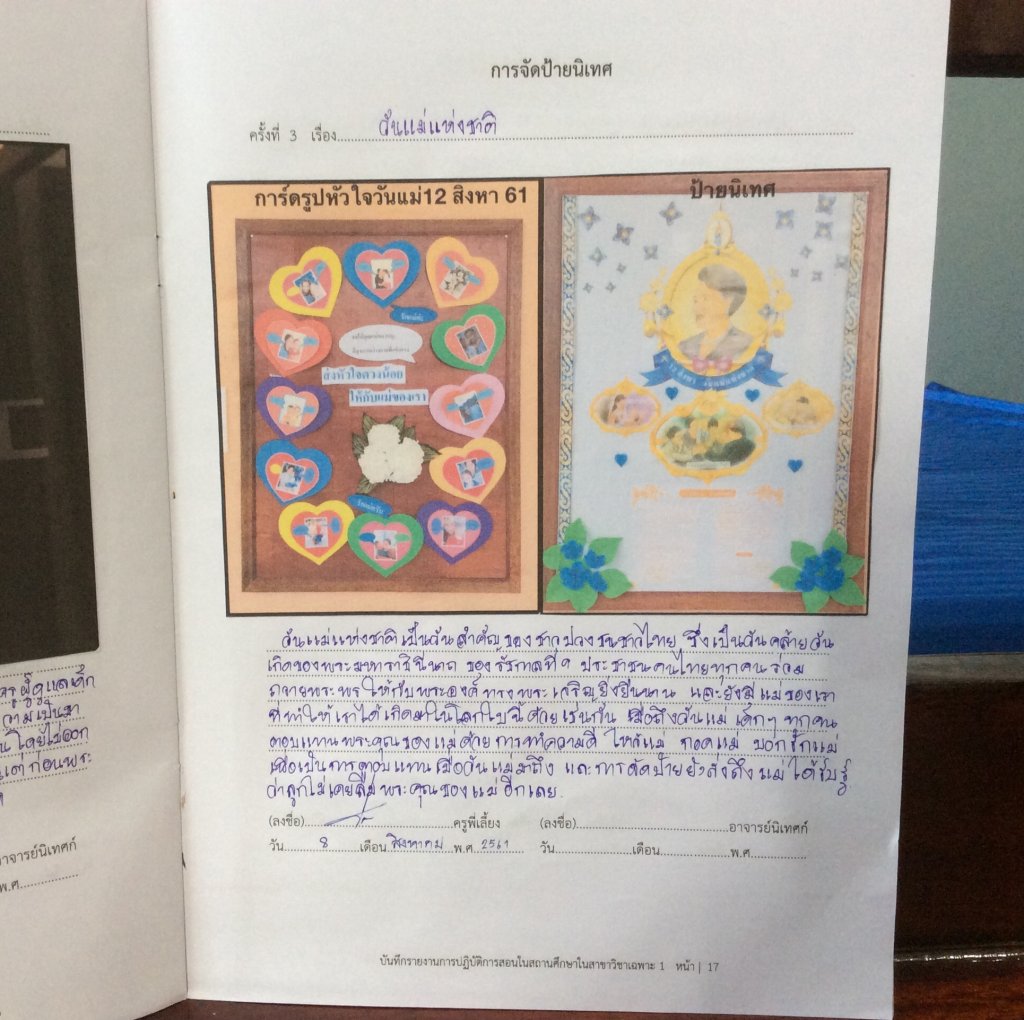 การจัดป้ายนิเทศ
ครั้งที่ 3 เรื่อง วันแม่แห่งชาติ
การ์ดรูปหัวใจวันแม่12 สิงหา 61
ป้ายนิเทศ
ส่งหัวใจดวงน้อย
ให้กับแม่ของเรา
12 สิงหา วันแม่แห่งชาติ
วันแม่แห่งชาติ เป็นวันสำคัญของชาวปวงชนชาวไทย ซึ่งเป็นวันคล้ายวัน
เกิดของพระมหาราชินีนาถ ของรัชกาลที่ ๙ ประชาชนคนไทยทุกคนร่วม
ถวายพระพรให้กับพระองค์ทรงพระเจริญยิ่งยืนนาน และยังมีแม่ของเรา
ที่ทำให้เราได้เกิดมาในโลกใบนี้ด้วยเช่นกัน เมื่อถึงวันแม่ เด็กๆ ทุกคน
ตอบแทนพระคุณของแม่ด้วยการทำความดี ไหว้แม่ กอดแม่ บอกรักแม่
เพื่อเป็นการตอบแทนเมื่อวันแม่มาถึง และการจัดป้ายยังสื่อถึงแม่ได้รับรู้
ว่าลูกไม่เคยลืมพระคุณของแม่อีกเลย.
(ลงชื่อ) ครูพี่เลี้ยง (ลงชื่อ) อาจารย์นิเทศก์
วัน 8 เดือน สิงหาคม พ.ศ. 2561 วัน เดือน พ.ศ.
บันทึกรายงานการปฏิบัติการสอนในสถานศึกษาในสาขาวิชาเฉพาะ 1 หน้า | 17